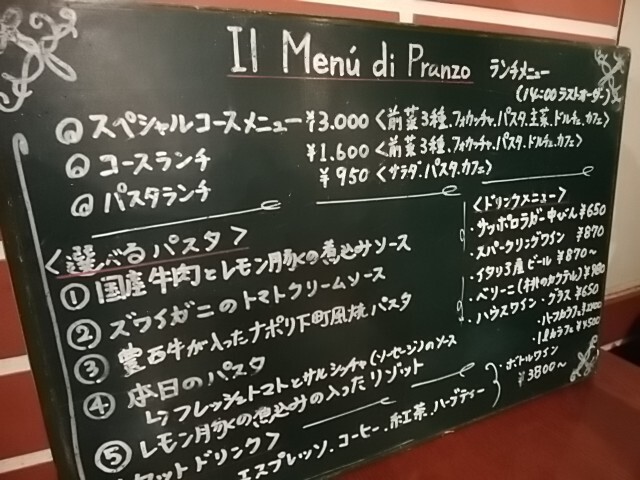 Il Menú di Pranzo ランチメニュー
(14:00ラストオーダー)
スペシャルコースメニュー ¥3.000 〈前菜3種.フォカッチャ.パスタ.主菜.ドルチェ.カフェ〉
コースランチ ¥1.600 〈前菜3種.フォカッチャ.パスタ.ドルチェ.カフェ〉
パスタランチ ¥950 〈サラダ.パスタ.カフェ〉
〈選べるパスタ〉
① 国産牛肉とレモン豚の煮込みソース
② ズワイガニのトマトクリームソース
③ 豊西牛が入ったナポリ下町風焼パスタ
④ 本日のパスタ
フレッシュトマトとサルシッチャ(ソーセージ)のソース
⑤ レモン豚の煮込みの入ったリゾット
ットドリンク〉
エスプレッソ.コーヒー.紅茶.ハーブティー
〈ドリンクメニュー〉
・サッポロラガー中びん ¥650
・スパークリングワイン ¥870
・イタリア産ビール ¥870〜
・ベリーニ(桃のカクテル) ¥980
・ハウスワイン・グラス ¥650
・ハーフカラフェ
・1ℓカラフェ ¥4500
・ボトルワイン
¥3800〜